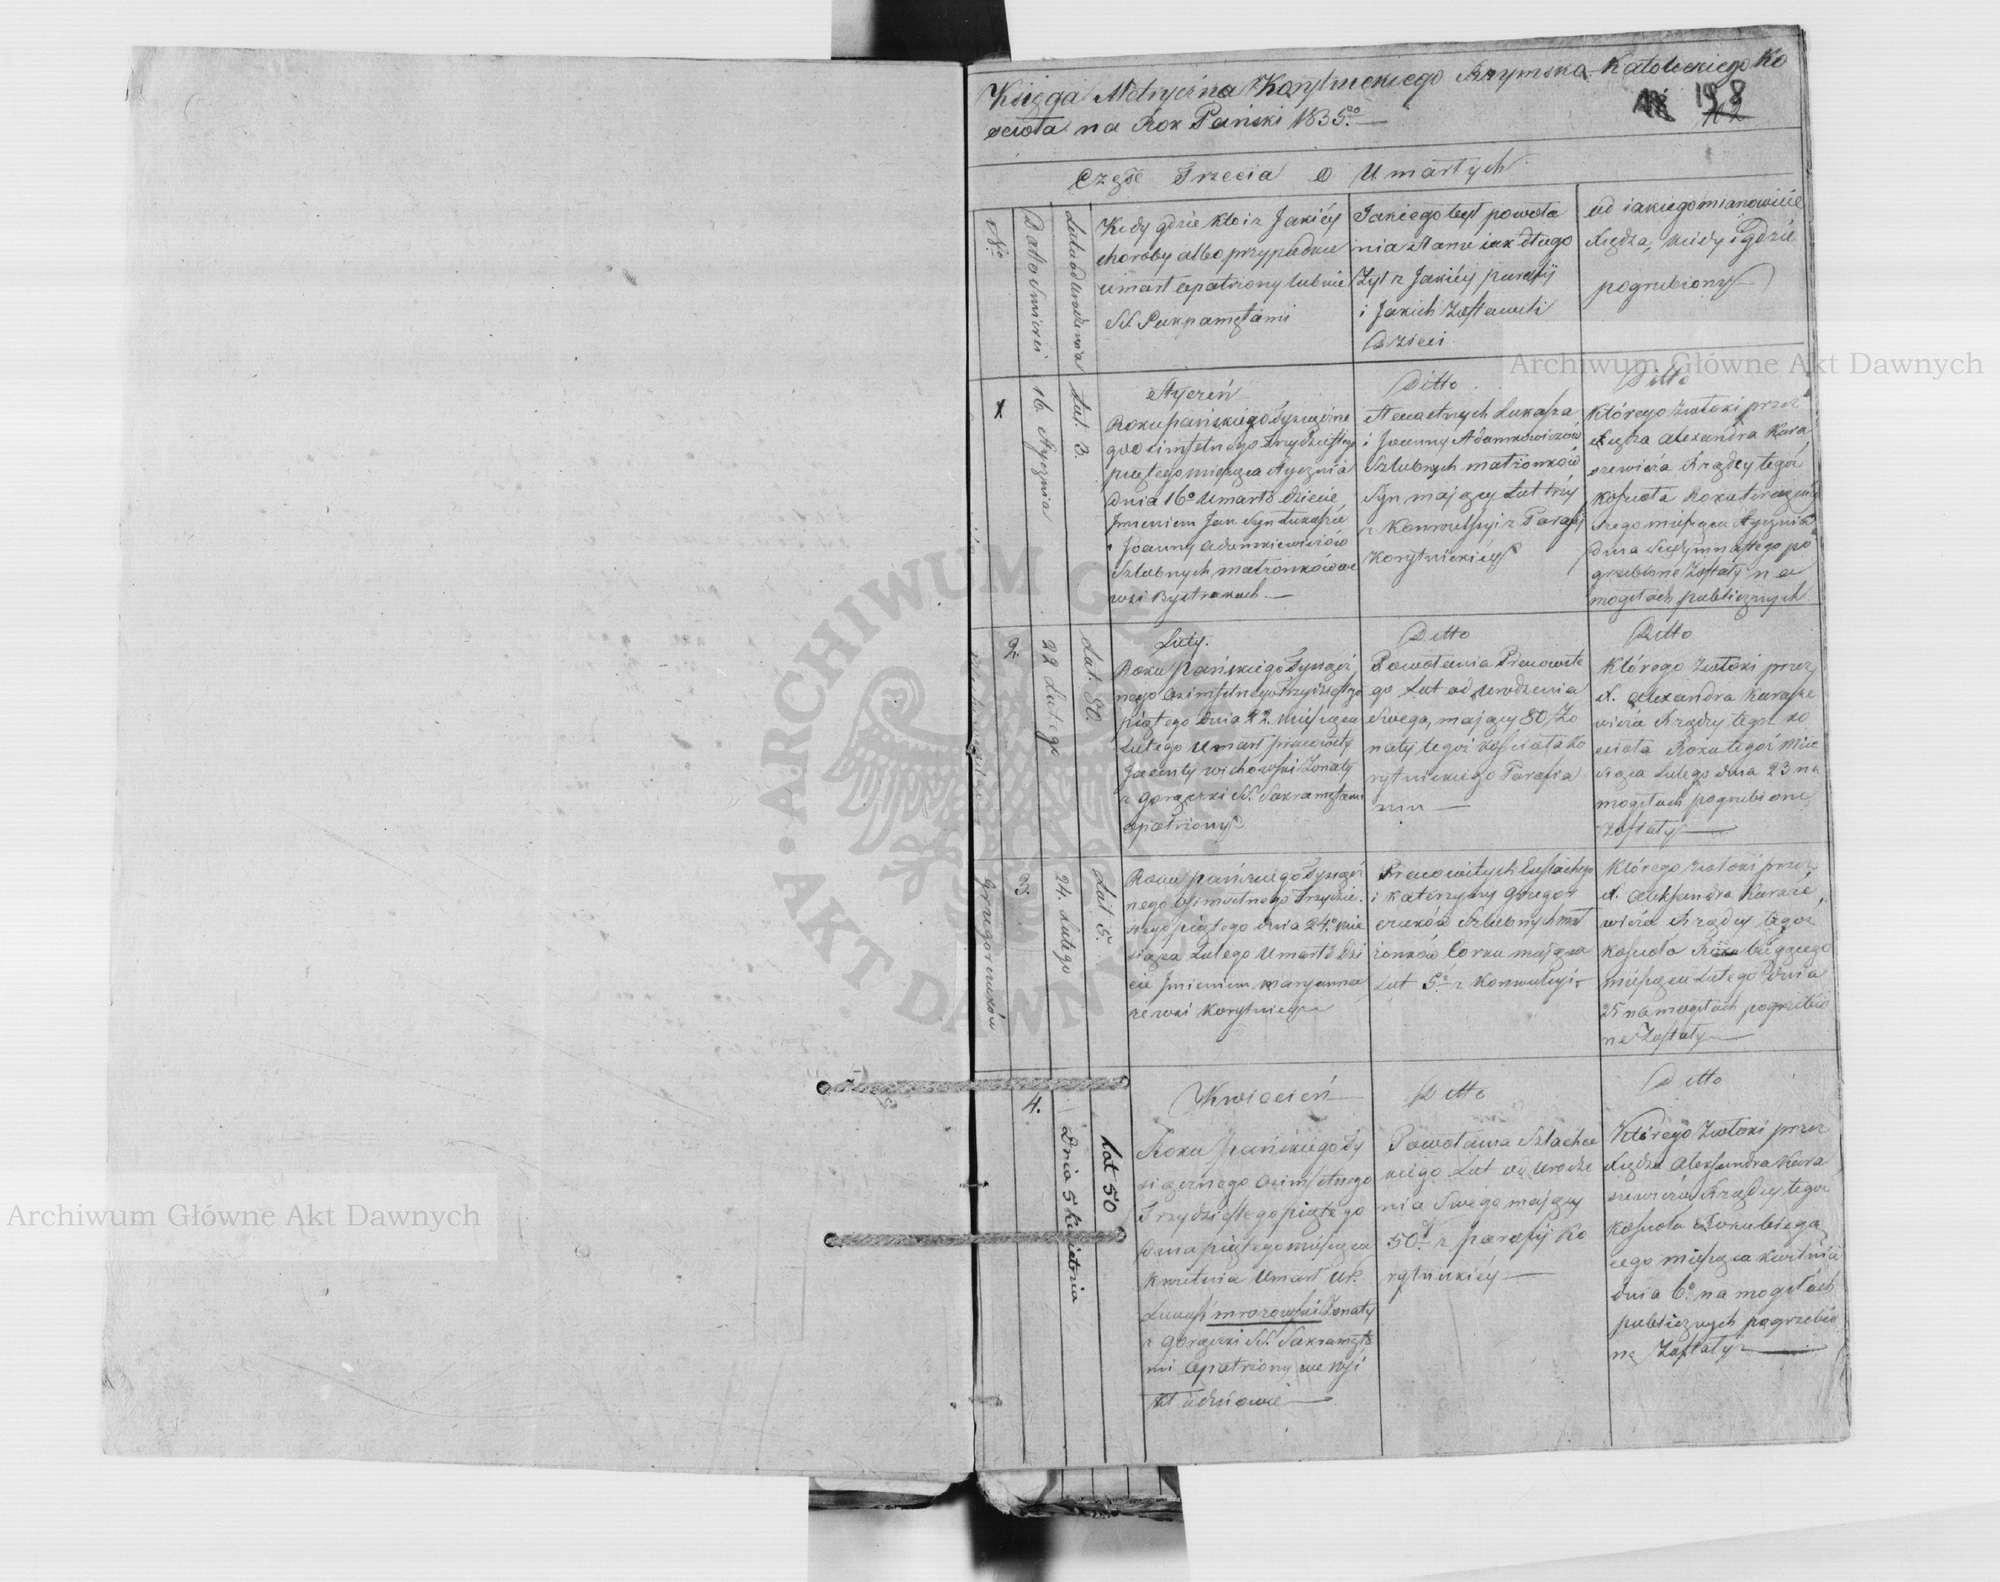 Księga Metryczna Korytnickiego Rzymsko Katolickiego Ko
scioła na Rok Pański 1835go
198
Część Trzecia O Umarłych
No
Data Smierci
Lata od Urodzenia
Kiedy gdzie kto i z Jakiéy
choroby albo przypadku
umarł opatrzony lub nie
SS. Sakramętami
Jakiego był powoła
nia stanu jak długo
żył z Jakiéy parafij
i Jakich zostawił
Dzieci
od iakiego mianowicie
Księdza, kiedy i gdzie
pogrzebiony
1
16 Stycznia
Lat. 3.
Styczeń
Roku pańskiego Tysiączne
go osimsetnego Trzydziestego
piątego miesiąca Stycznia
Dnia 16o Umarło dziecie
Jmieniem Jan Syn Łukasza
i Joanny Adamkiewiczów
Szlubnych małżonków we
wsi Bystrakach
Ditto
Szlachetnych Łukasza
i Joanny Adamkowiczów
Szlubnych małżonków
Syn mający Lat trzy
z Konwulsyi z Parafij
Korytnickiéy
Ditto
Którego zwłoki przez
Księdza Alexandra Kara
szewicza Rządcy tegoż
kościoła Roku teraźniey
szego miesiąca Stycznia
Dnia Siedymnastego po
grzebione zostały na
mogiłach publicznych
2.
22 Lutego
Lat. 80.
Luty.
Roku Pańskiego Tysiącz
nego Osimsetnego Trzydziestego
piątego dnia 22. miesiąca
Lutego Umarł pracowity
Jacenty Wichowski Żonaty
z gorączki SS. Sakramętami
opatrzony
Ditto
Powołania Pracowite
go Lat od urodzenia
Swego, mający 80 Żo
naty tegoż kościoła Ko
rytnickiego Parafia
nin
Ditto
Którego zwłoki przez
X. Alexandra Karasze
wicza Rządzy tegoż ko
scioła Roku tegoż Mie
siąca Lutego dnia 23 na
mogiłach pogrzebione
zostały
Grzegorczuków
3.
24. Lutego
Lat 5.
Roku pańskiego Tysiącz
nego Osimsetnego Trzydzie
stego piątego dnia 24o mie
siąca Lutego Umarło Dzi
cie Jmieniem Maryanna
ze wsi Korytnicy
Pracowitych Eustachego
i Katarzyny Grzegor
czuków Szlubnych mał
żonków Corka mająca
Lat 5. z Konwulsyi
Którego zwłoki przez
X. Aleksandra Karasze
wicza Rządcy tegoż
kościoła Roku bieżącego
miesiąca Lutego Dnia
25 na mogiłach pogrzebio
ne Zostały
4.
Dnia 5 kwietnia
Lat 50
Kwiecień
Roku Pańskiego Ty
siącznego Osimsetnego
Trzydziestego piątego
Dnia piątego miesiąca
Kwietnia Umarł Ur.
Mrozowski Żonaty
z gorączki SS. Sakramęta
mi opatrzony we wsi
Ditto
Powołania Szlachec
kiego Lat od urodze
nia Swego mający
50. z parafij Ko
rytnickiéy
Ditto
Którego Zwłoki przez
Księdza Aleksandra Kara
szewicza Rządcy tegoż
kościoła Roku bieżą
cego miesiąca kwietnia
dnia 6o na mogiłach
publicznych pogrzebio
ne Zostały
Archiwum Główne Akt Dawnych
Archiwum Główne Akt Dawnych
ARCHIWUM
AKT DAWNYCH